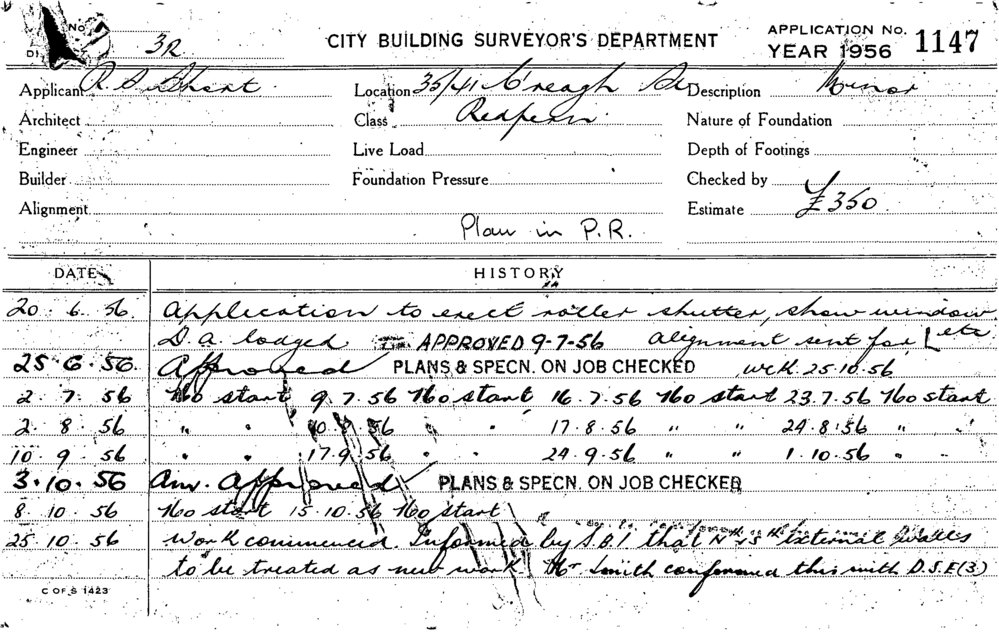 No.
3R
CITY BUILDING SURVEYOR'S DEPARTMENT
APPLICATION No. 1147
YEAR 1956
Applicant R. S.
Location 35/41 C'reagh St
Description Minor
Architect
Class Redfern
Nature of Foundation
Engineer
Live Load
Depth of Footings
Builder
Foundation Pressure
Checked by
Alignment
Estimate £350
Plan in P.R.
DATE
HISTORY
20.6.56. Application to erect roller shutter, show window etc
D.A. lodged APPROVED 9-7-56 alignment sent for
25.6.56. Approved PLANS & SPECN. ON JOB CHECKED 25.10.56
2.7.56 No start 9.7.56 No start 16.7.56 No start 23.7.56 No start
2.8.56 " " 10.8.56 " " 17.8.56 " " 24.8.56 " "
10.9.56 " " 17.9.56 " " 24.9.56 " " 1.10.56 " "
3.10.56 Am. Approved PLANS & SPECN. ON JOB CHECKED
8.10.56 No start 15.10.56 No start
25.10.56 Work commenced. Informed by S.B.I that external
to be treated as new work. Mr Smith confermed this with D.S.E(3)
C OF S 1423